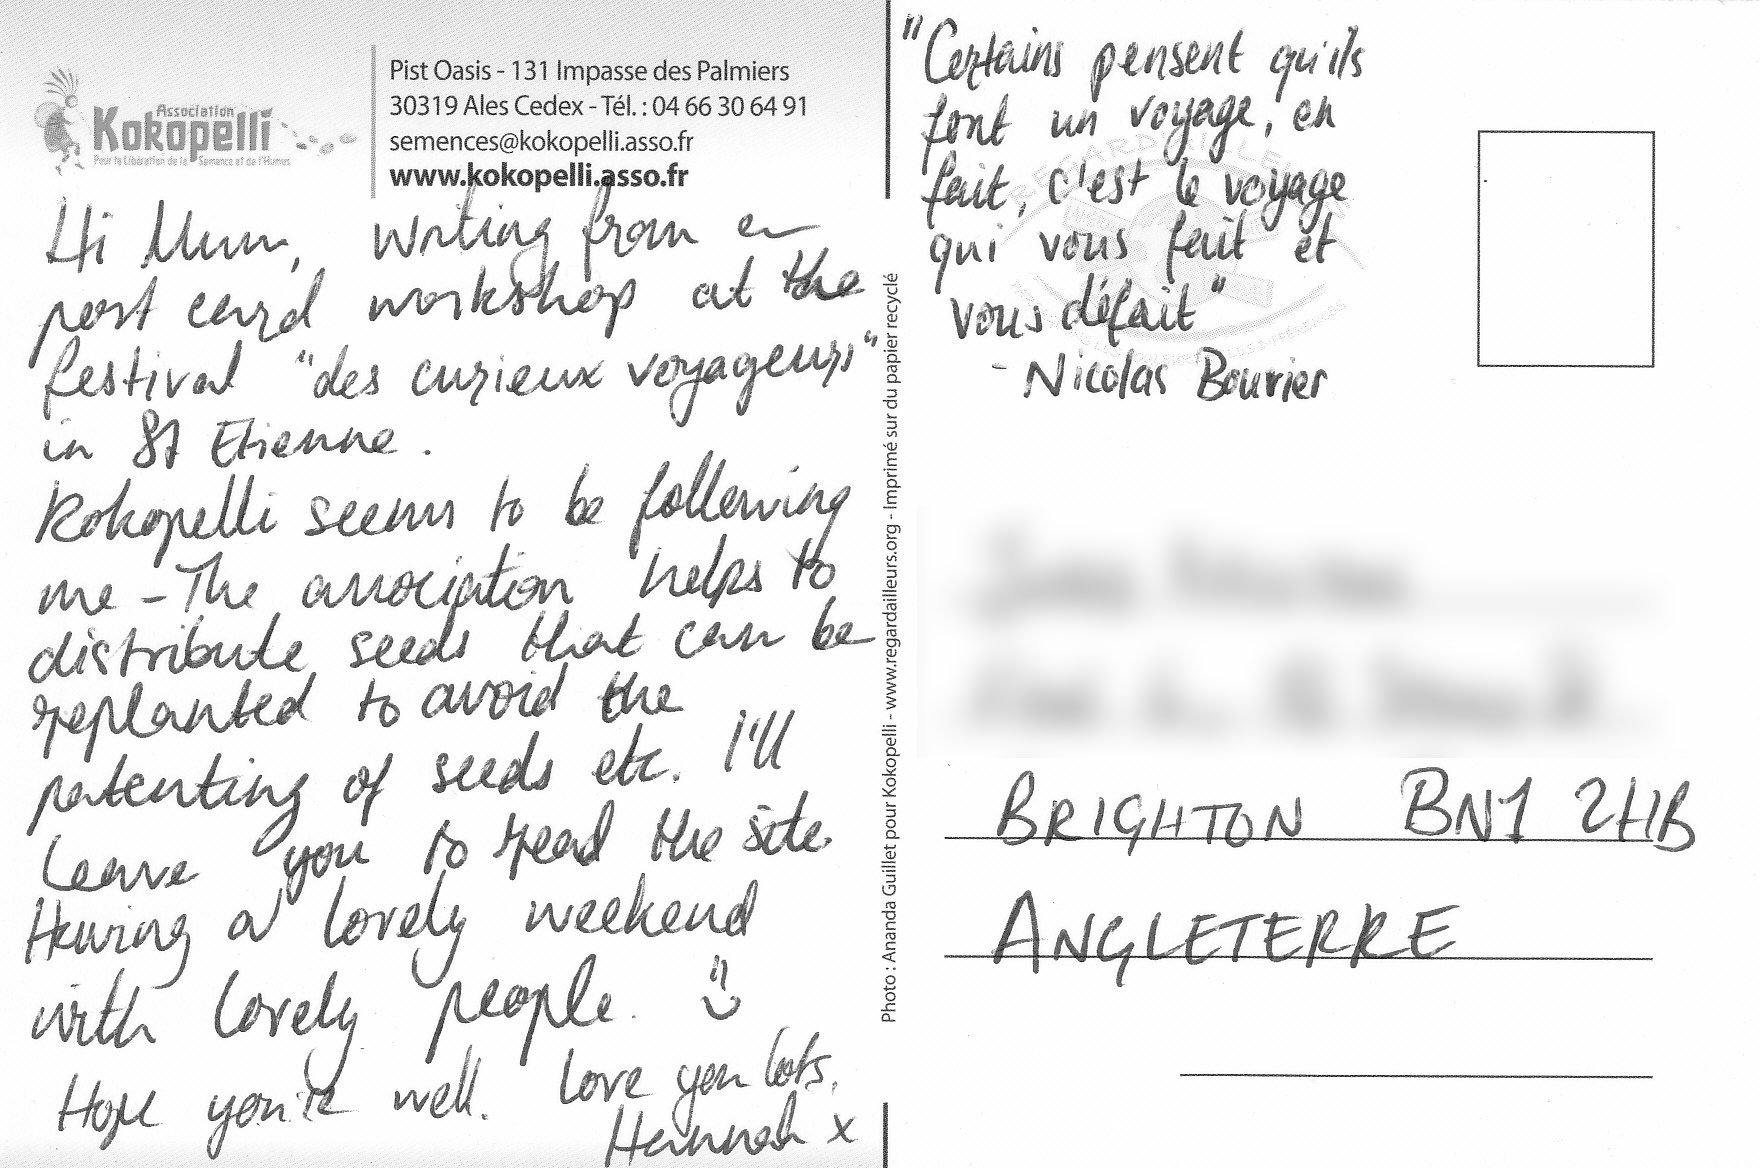 Association
Kokopelli
Pour la Libération de la Semence et de l'Humus
Pist Oasis - 131 Impasse des Palmiers
30319 Ales Cedex - Tél. : 04 66 30 64 91
semences@kokopelli.asso.fr
www.kokopelli.asso.fr
Hi Mum, writing from a
post card workshop at the
festival "des curieux voyageurs"
in St Etienne.
Kokopelli seems to be following
me - The association helps to
distribute seeds that can be
replanted to avoid the
patenting of seeds etc. I'll
leave you to read the site.
Having a lovely weekend
with lovely people.
Hope you're well. Love you lots,
Hannah x
Photo : Ananda Guillet pour Kokopelli - www.regardailleurs.org - Imprimé sur du papier recyclé
"Certains pensent qu'ils
font un voyage, en
fait, c'est le voyage
qui vous fait et
vous défait"
- Nicolas Bouvier
BRIGHTON BN1 2HB
ANGLETERRE